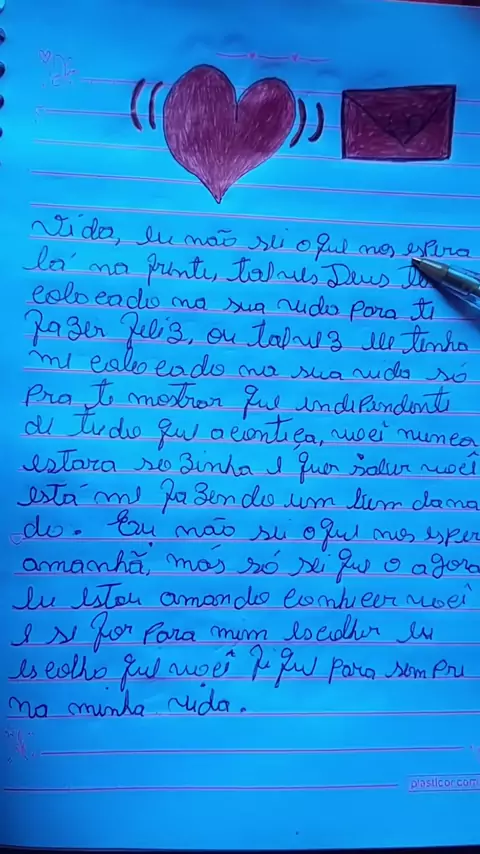 Vida, eu não sei o que nos espera
lá na frente, talves Deus te
colocado na sua vida para ti
fazer feliz, ou talvez ele tenha
me colocado na sua vida só
pra ti mostrar que independente
de tudo que aconteça, você nunca
estara sozinha e quer saber você
está me fazendo um bem dana
do. Eu não sei o que nos esper
amanhã, más só sei que o agora
eu estou amando conhecer você
e se for para mim escolher eu
escolho que você fique para sempre
na minha vida.
plasticor.com